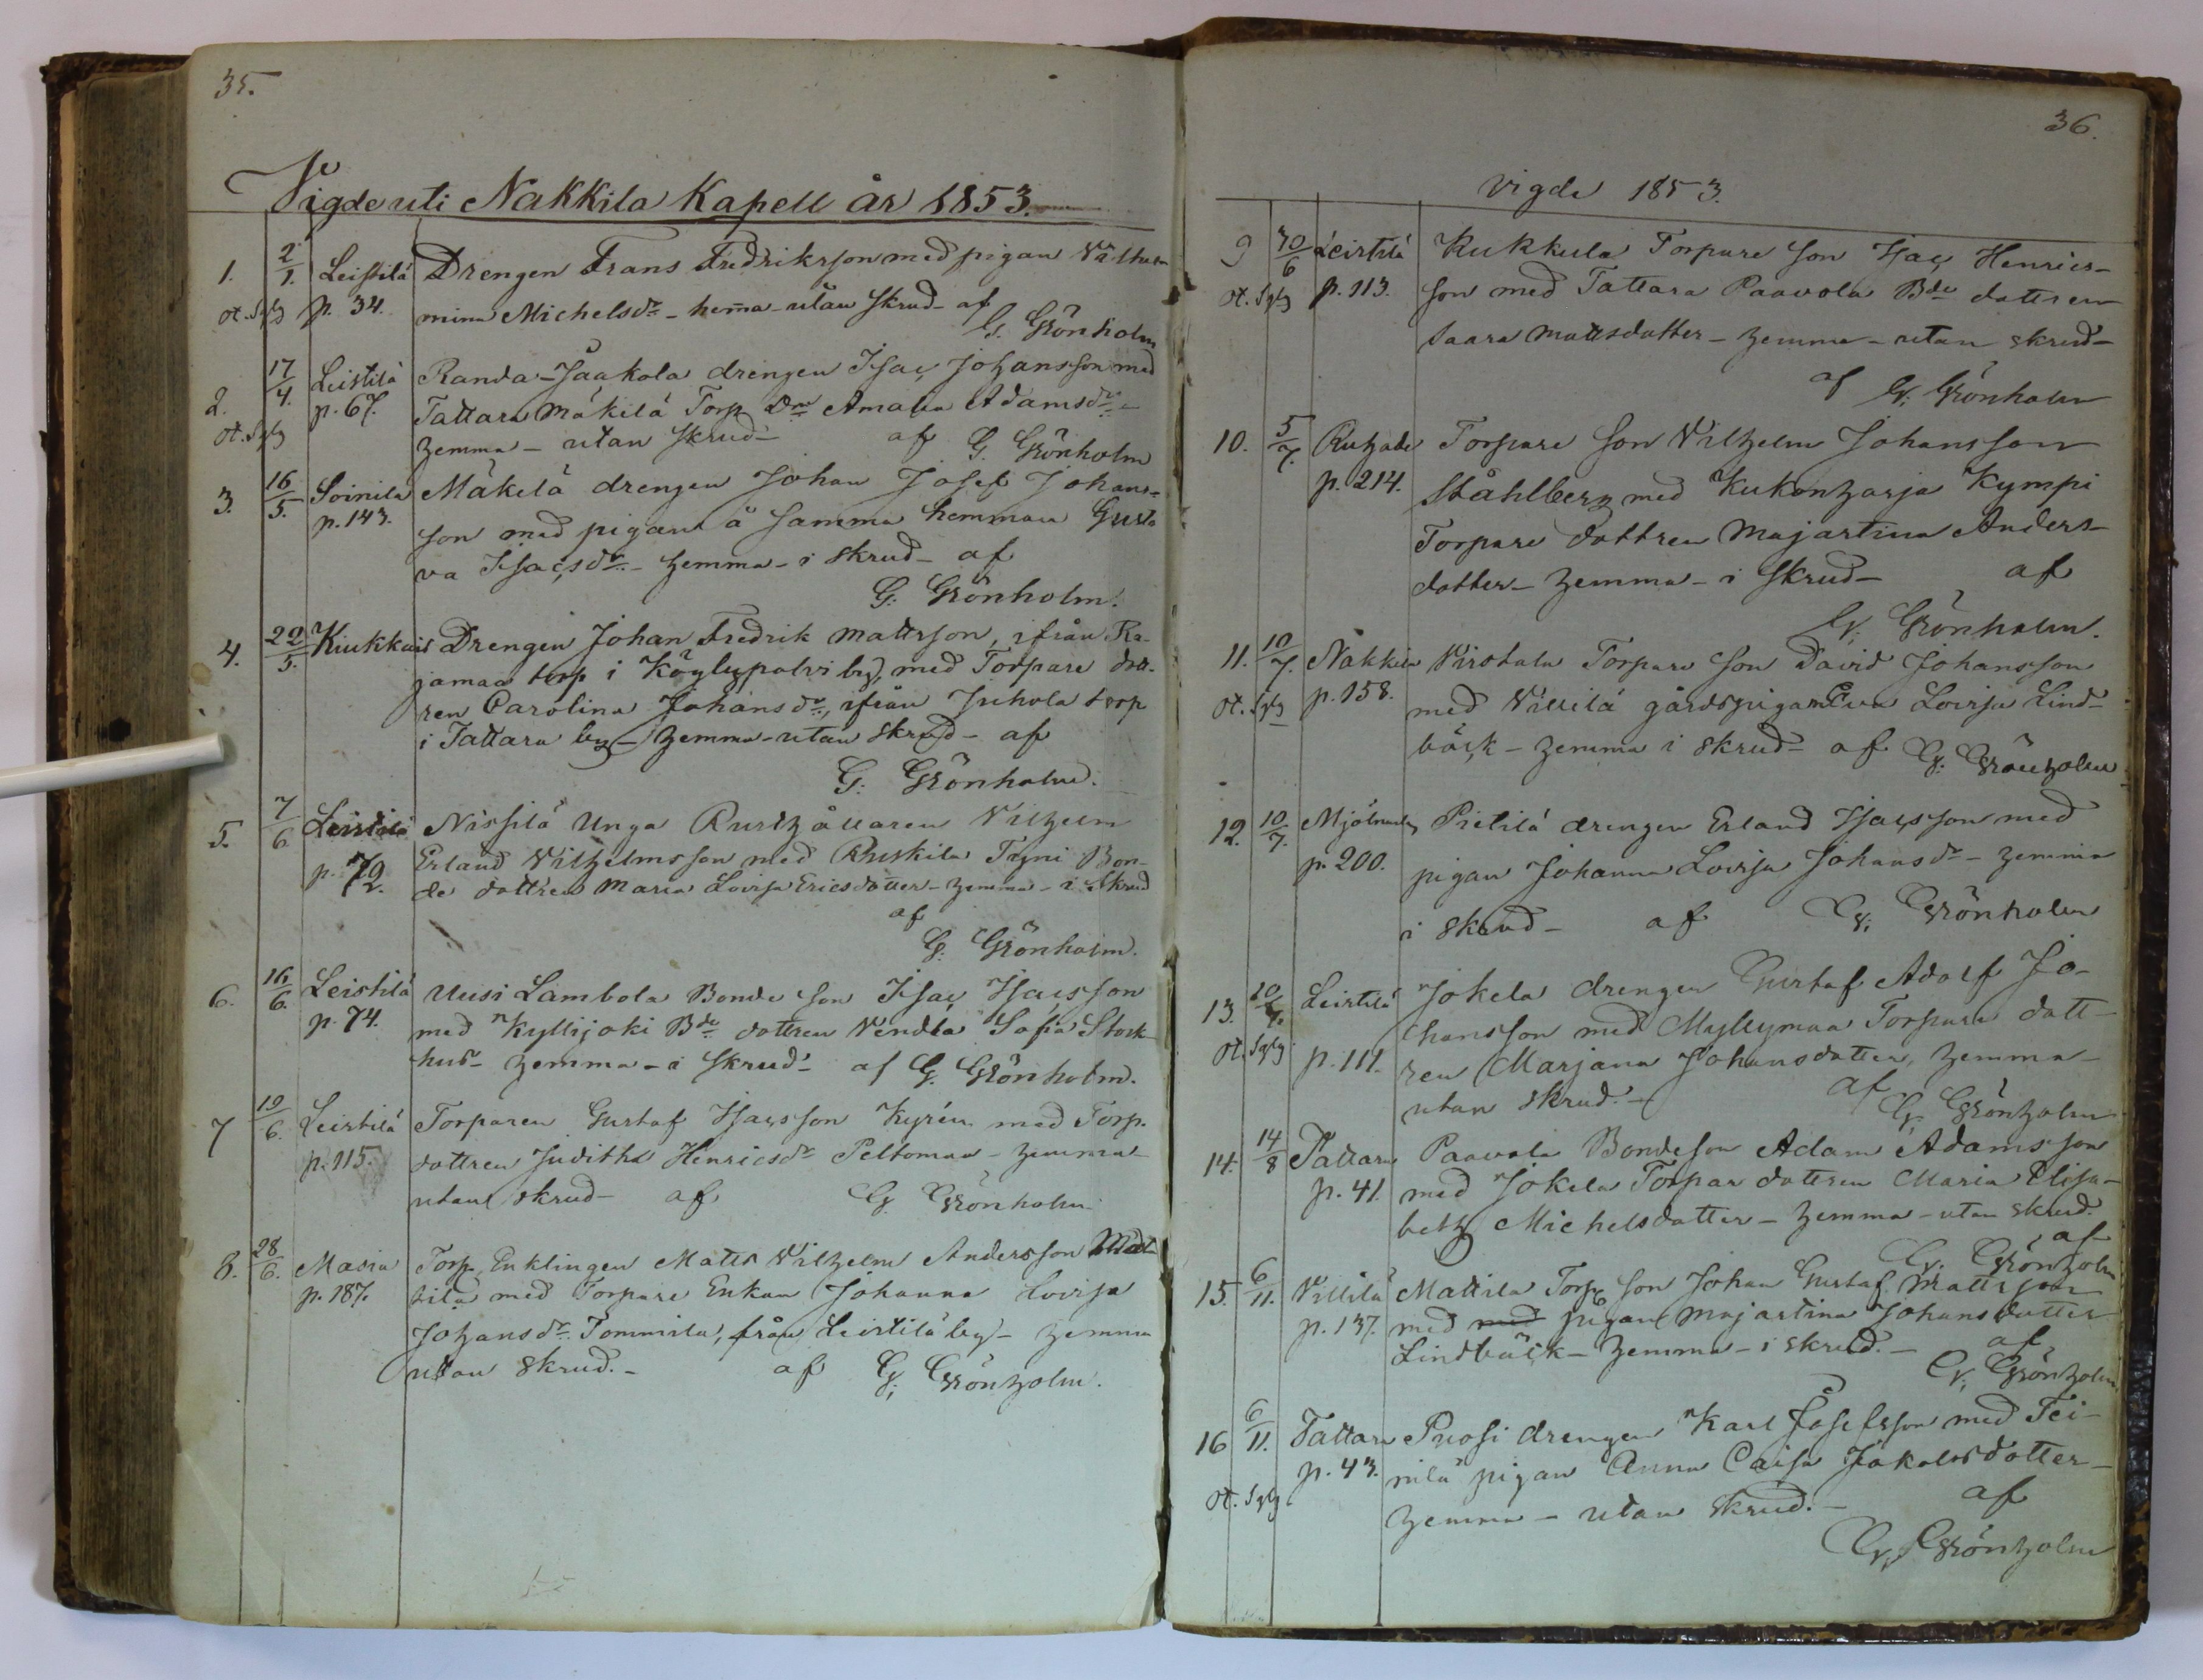 35.
Vigde uti Nakkila Kapell år 1853.
1. 2/1. Leistilä Drengen Frans Fredriksson med pigan Vilhel-
ot. Sgfg p. 34. mina Michelsdr - hemma - utan skrud - af
G. Grönholm
2. 17/4. Leistilä Randa-Jaakola drengen Isac Johansson med
ot. Sgfg p. 67. Tattara Mäkilä Torp. Dr Amalia Adamsdr -
hemma - utan skrud - af G. Grönholm
3. 16/5. Soinila Mäkelä drengen Johan Josef Johans-
p. 143. son med pigan å samma hemman Gusta
va Isacsdr - hemma - i skrud - af
G. Grönholm.
4. 22/5. Kiukkais Drengen Johan Fredrik Mattsson, ifrån Ra-
jamaa torp i Köylypolvi by, med Torpare dott-
ren Carolina Johansdr, ifrån Juhola torp
i Tattara by - hemma - utan skrud - af
G. Grönholm.
5. 7/6. Leistilä Nissilä Unga Rusthållaren Vilhelm
p. 72. Erland Vilhelmsson med Ruskila Tyni Bon-
de dottren Maria Lovisa Ericsdotter - hemma - i skrud
af
G. Grönholm.
6. 16/6. Leistilä Uusi Lambola Bonde son Isac Isacsson
p. 74. med Kyllijoki Bde dottren Vendla Sofia Stock-
hus - hemma - i skrud - af G. Grönholm.
7 19/6. Leistilä Torparen Gustaf Isacsson Kyrén med Torp.
p. 115. dottren Juditha Henricsdr Peltomaa - hemma -
utan skrud - af G. Grönholm
8. 28/6. Masia Torp. Enklingen Matts Vilhelm Andersson Mat-
p. 187. tila med Torpare Enkan Johanna Lovisa
Johansdr Tommila, från Leistilä by - hemma
utan skrud. - af G. Grönholm.
36.
Vigde 1853.
9 30/6 Leistilä Kukkula Torpare son Isac Henrics-
ot. Sgfg p. 113. son med Tattara Paavola Bde dottren
Saara Mattsdotter - hemma - utan skrud -
af G. Grönholm
10. 5/7. Torpare son Vilhelm Johansson
p. 214. Ståhlberg med Kukonharja Kympi
Torpare dottren Majastina Anders-
dotter - hemma - i skrud - af
G. Grönholm.
11. 10/7. Nakkila Virstala Torpare son David Johansson
ot. Sgfg p. 158. med Villilä gårdspigan Eva Lovisa Lind-
bäck - hemma i skrud - af G. Grönholm
12. 10/7. Pietilä drengen Erland Isacsson med
p. 200. pigan Johanna Lovisa Johansdr - hemma
i skrud - af G. Grönholm
13. 20/7. Leistilä Jokela drengen Gustaf Adolf Jo-
ot. Sgfg p. 111. hansson med Myllymaa Torpare dott-
ren Marjana Johansdotter, hemma -
utan skrud. - af G. Grönholm
14. 14/8 Tattara Paavola Bondeson Adam Adamsson
p. 41. med Jokela Torpar dottren Maria Elisa-
beth Michelsdotter - hemma - utan skrud.
af
G. Grönholm
15. 6/11. Villilä Mattila Torp. son Johan Gustaf Mattsson
p. 137. med med pigan Majastina Johansdotter
Lindbäck - hemma - i skrud. - af
G. Grönholm
16 6/11. Tattara Puosi drengen Karl Josefsson med Tei-
p. 43. nilä pigan Anna Caisa Jakobsdotter -
ot. Sgfg hemma - utan skrud. - af
G. Grönholm